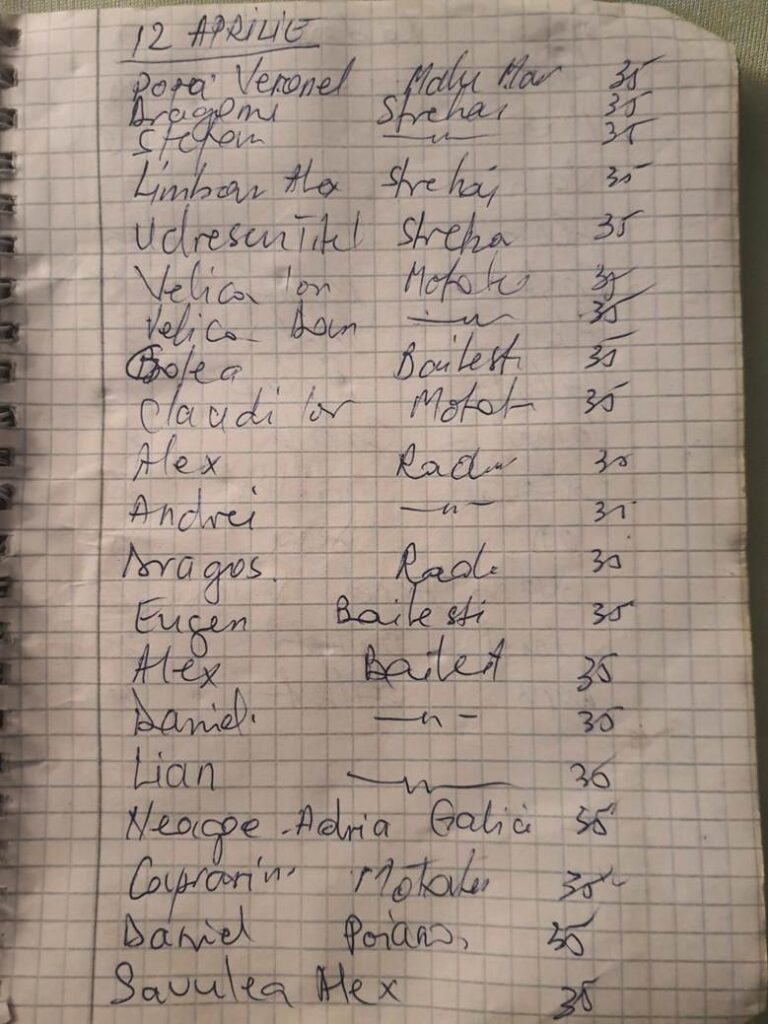 12 APRILIE
Popa Veronel Malu Mar 35
Dragomi Strehai 35
Stefan —"— 35
Limban Alex Strehaj 35
Udrescu Titel Streha 35
Velica Ion Motatu 35
Velica Dan —"— 35
Bolea Bailesti 35
Claudi Ior Motat 35
Alex Radu 35
Andrei —"— 35
Dragos. Rad. 35
Eugen Bailesti 35
Alex Bailest 35
Daniel. —"— 35
Lian —"— 36
Neagoe Adria Galici 35
Caprarin Motatu 35
Daniel Poiana, 35
Savulea Alex 35